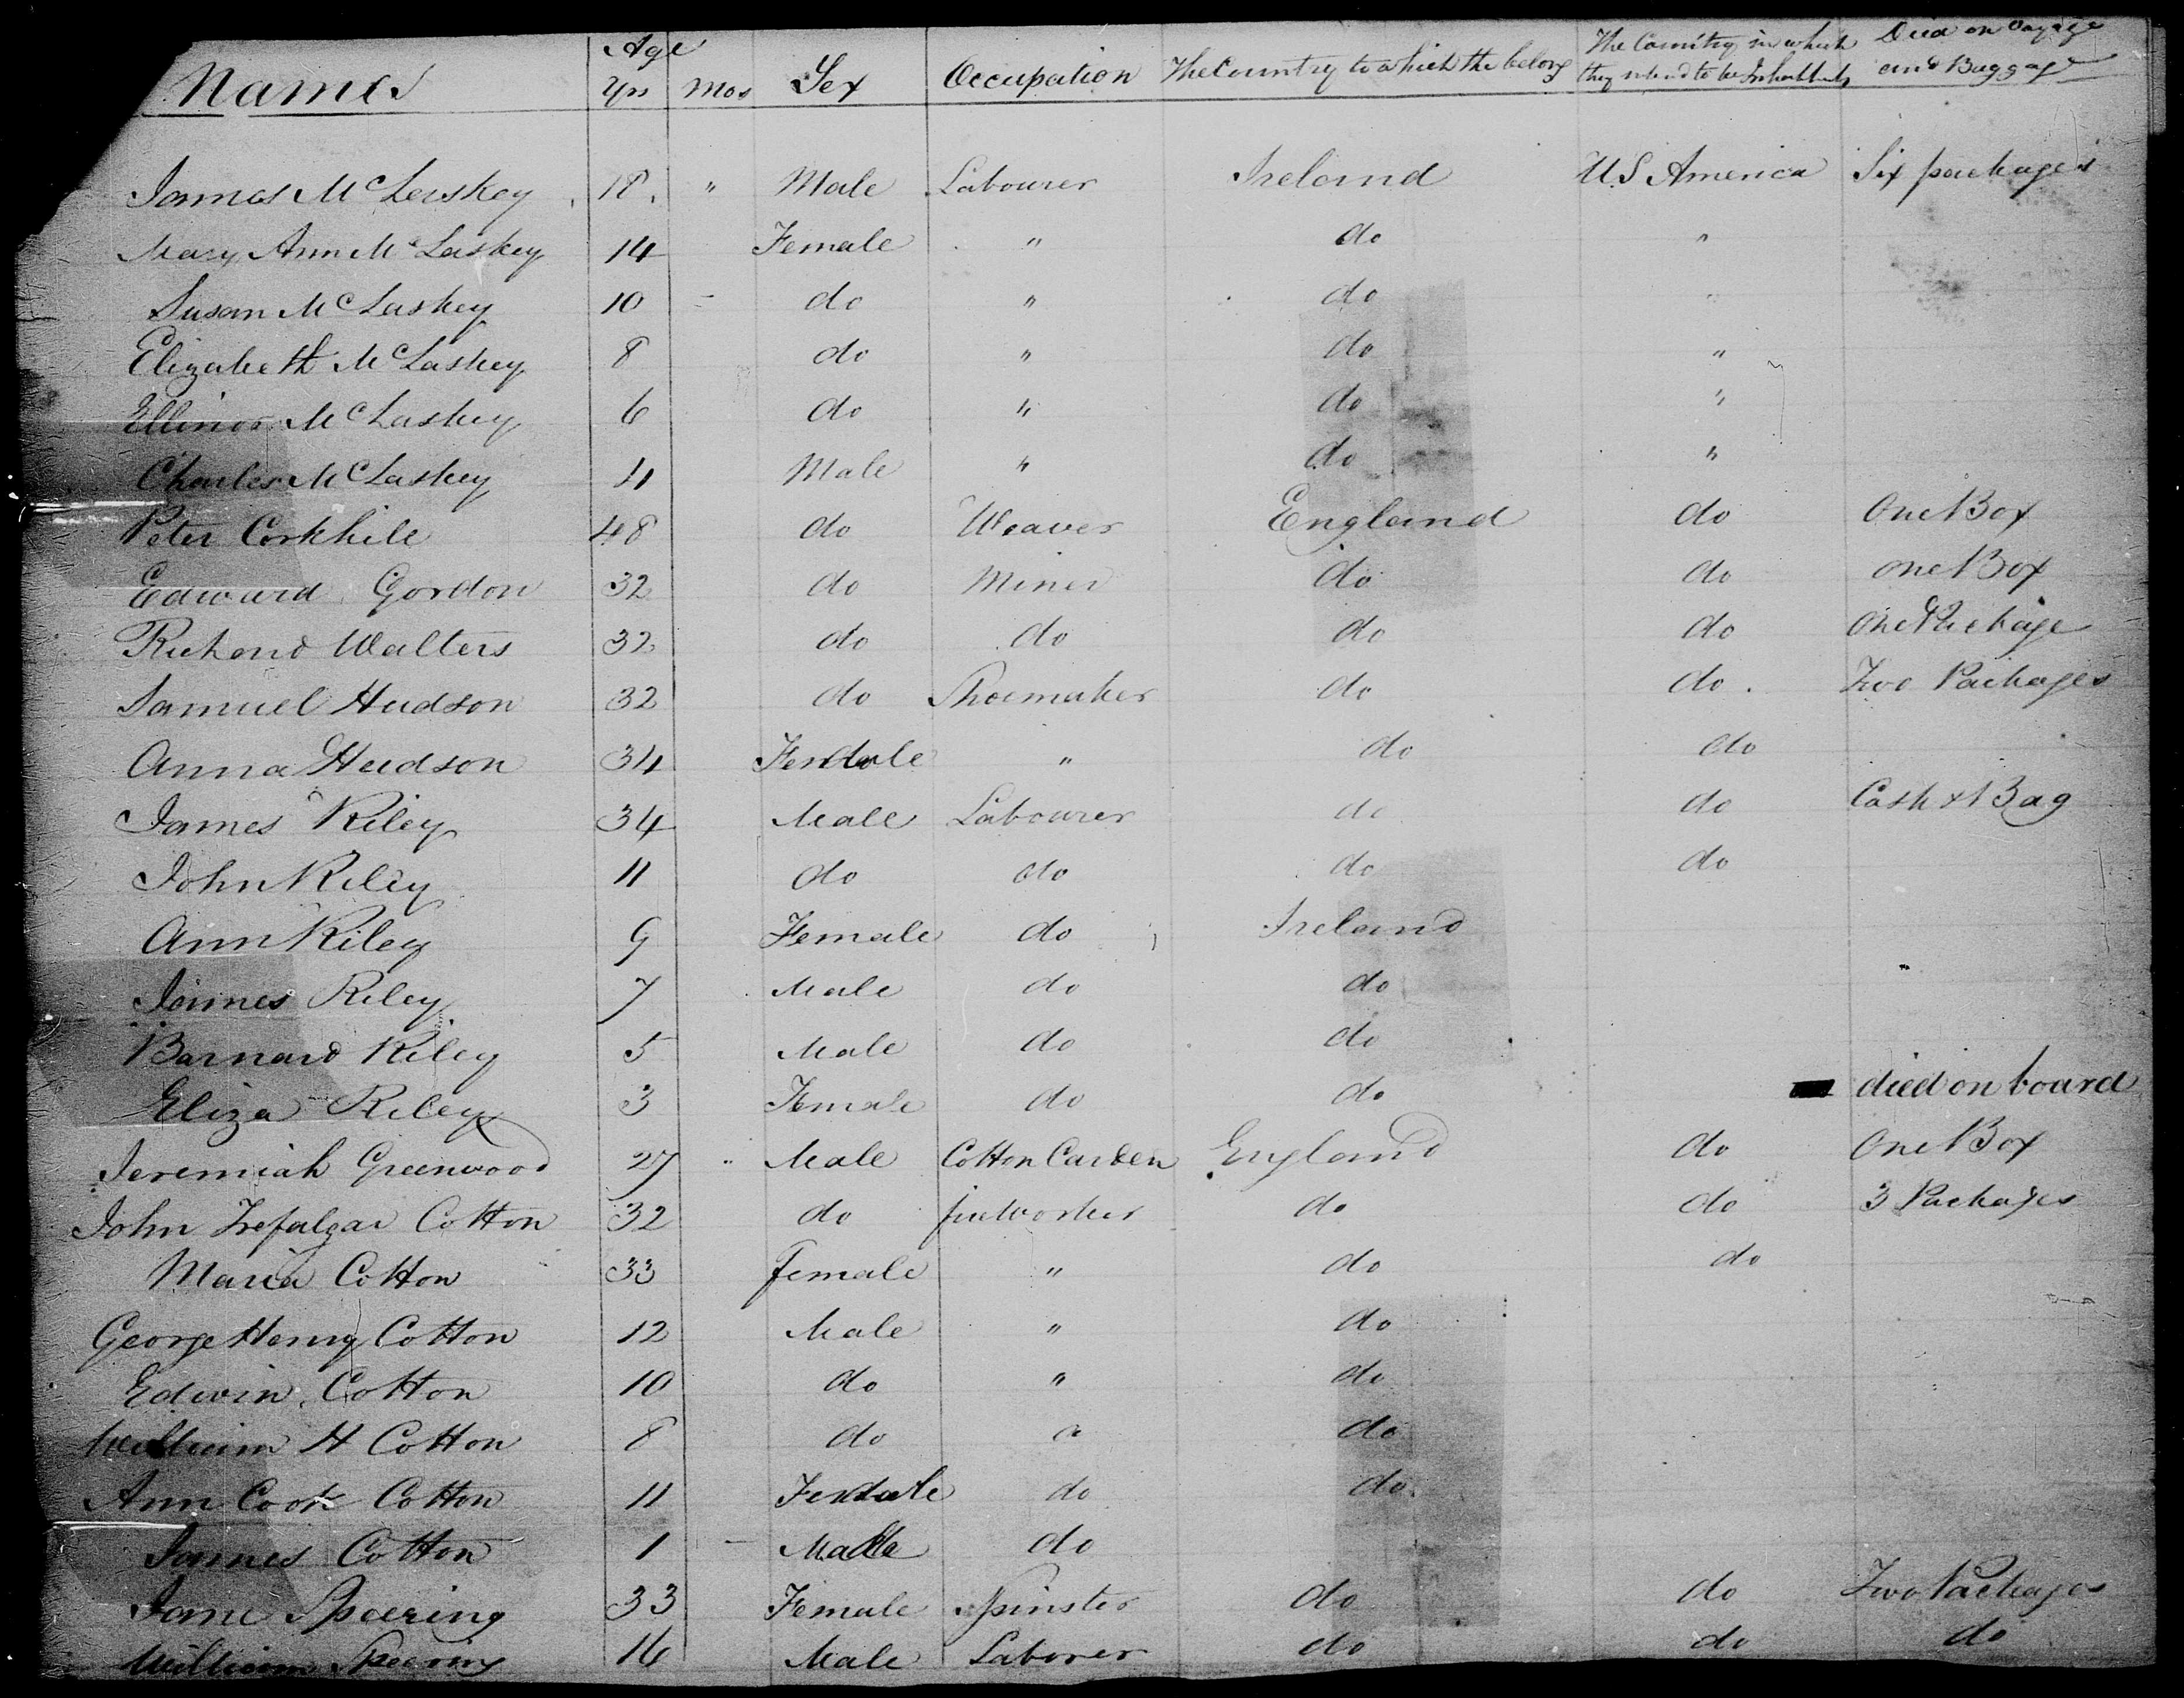 Names Age Yrs Mos Sex Occupation The Country to which the belong The Country in which they intend to be Inhabitants Died on Voyage and Baggage
James McLerskey 18 " Male Labourer Ireland U.S America Six packages
Mary Ann McLaskey 14 Female " do "
Susan McLaskey 10 do " do "
Elizabeth McLaskey 8 do " do "
Ellinor McLaskey 6 do " do "
Charles McLaskey 4 Male " do "
Peter Corkhile 48 do Weaver England do One Box
Edward Gordon 32 do Miner do do one Box
Richard Walters 32 do do do do One Package
Samuel Hudson 32 do Shoemaker do do Two Packages
Anna Hudson 34 Female " do do
James Riley 34 Male Labourer do do Cash & Bag
John Riley 11 do do do do
Ann Riley 9 Female do Ireland
James Riley 7 Male do do
Barnard Riley 5 Male do do
Eliza Riley 3 Female do do died on board
Jeremiah Greenwood 27 " Male Cotton England do One Box
John Trefalgar Cotton 32 do do do 3 Packages
Maria Cotton 33 female " do do
George Henry Cotton 12 Male " do
Edwin Cotton 10 do " do
William H Cotton 8 do " do
Ann Cook Cotton 11 Female do do
James Cotton 1 Male do
Jane Speering 33 Female Spinster do do Two Packages
William Speering 16 Male Laborer do do do